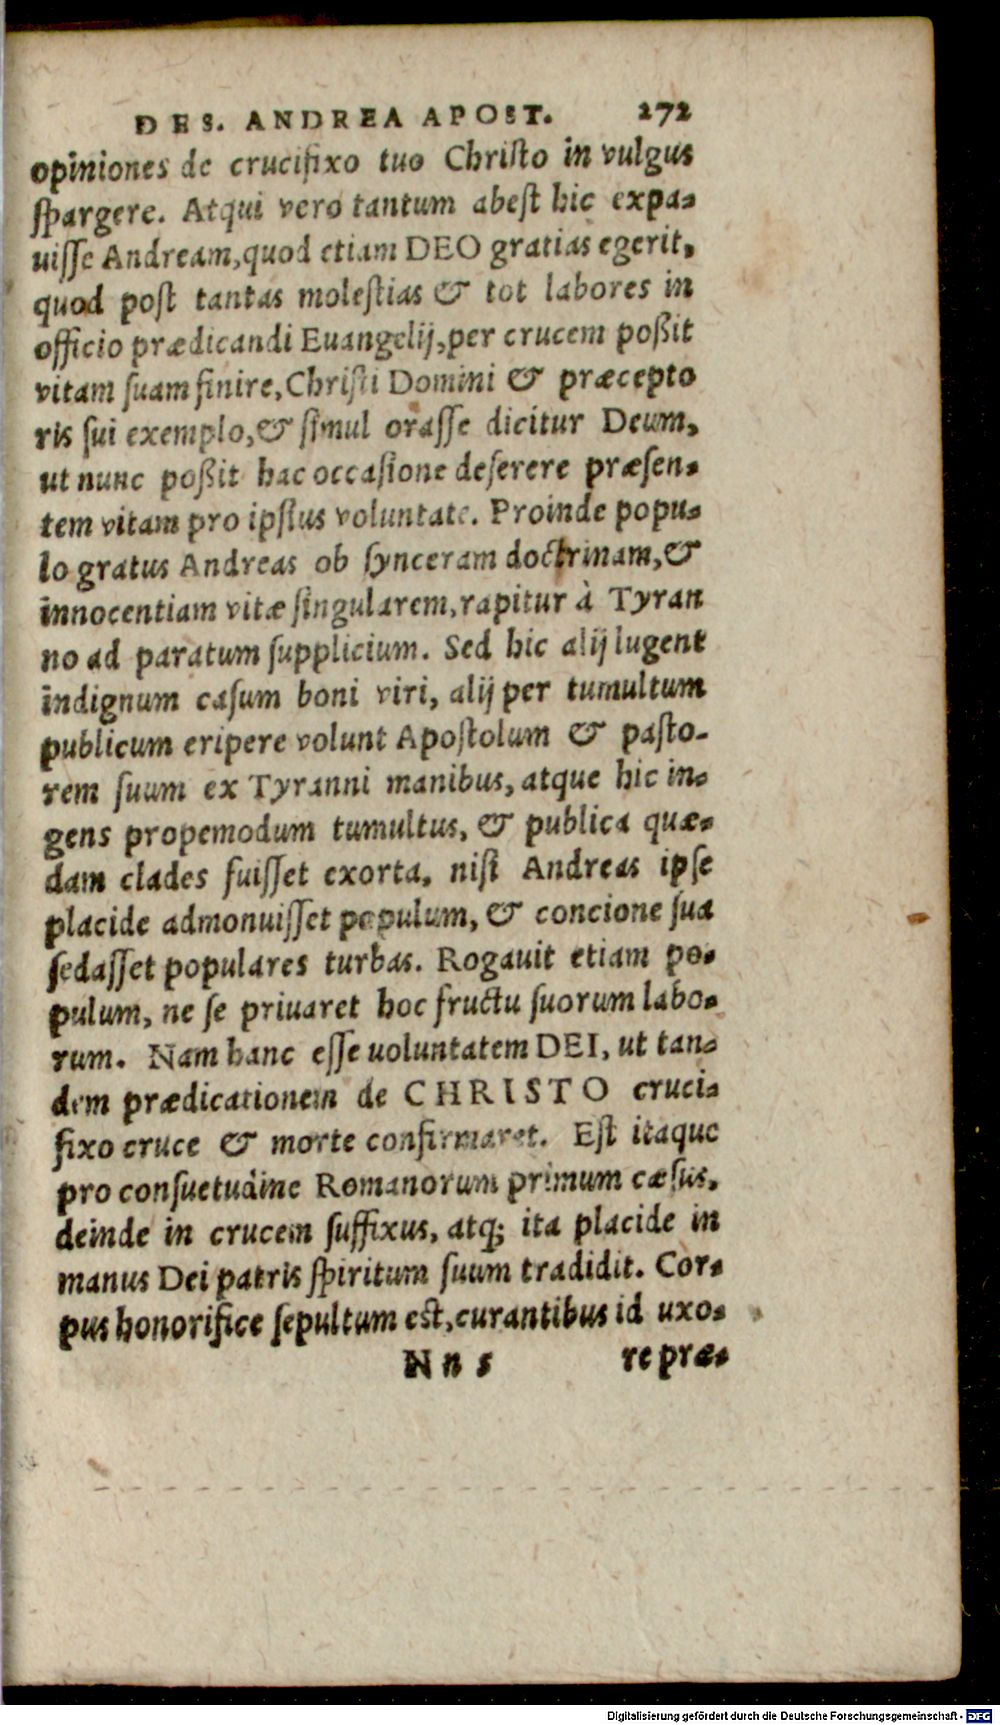 DE S. ANDREA APOST. 272
opiniones de crucifixo tuo Christo in vulgus
spargere. Atqui vero tantum abest hic expa-
uisse Andream, quod etiam DEO gratias egerit,
quod post tantas molestias & tot labores in
officio prædicandi Euangelij, per crucem poßit
vitam suam finire, Christi Domini & præcepto
ris sui exemplo, & simul orasse dicitur Deum,
ut nunc poßit hac occasione deserere præsen-
tem vitam pro ipsius voluntate. Proinde popu-
lo gratus Andreas ob synceram doctrinam, &
innocentiam vitæ singularem, rapitur à Tyran
no ad paratum supplicium. Sed hic alij lugent
indignum casum boni viri, alij per tumultum
publicum eripere volunt Apostolum & pasto-
rem suum ex Tyranni manibus, atque hic in-
gens propemodum tumultus, & publica quæ-
dam clades fuisset exorta, nisi Andreas ipse
placide admonuisset populum, & concione sua
sedasset populares turbas. Rogauit etiam po-
pulum, ne se priuaret hoc fructu suorum labo-
rum. Nam hanc esse uoluntatem DEI, ut tan-
dem prædicationem de CHRISTO cruci-
fixo cruce & morte confirmaret. Est itaque
pro consuetudine Romanorum primum cæsus,
deinde in crucem suffixus, atq; ita placide in
manus Dei patris spiritum suum tradidit. Cor-
pus honorifice sepultum est, curantibus id uxo-
N n s re præ-
Digitalisierung gefördert durch die Deutsche Forschungsgemeinschaft - DFG